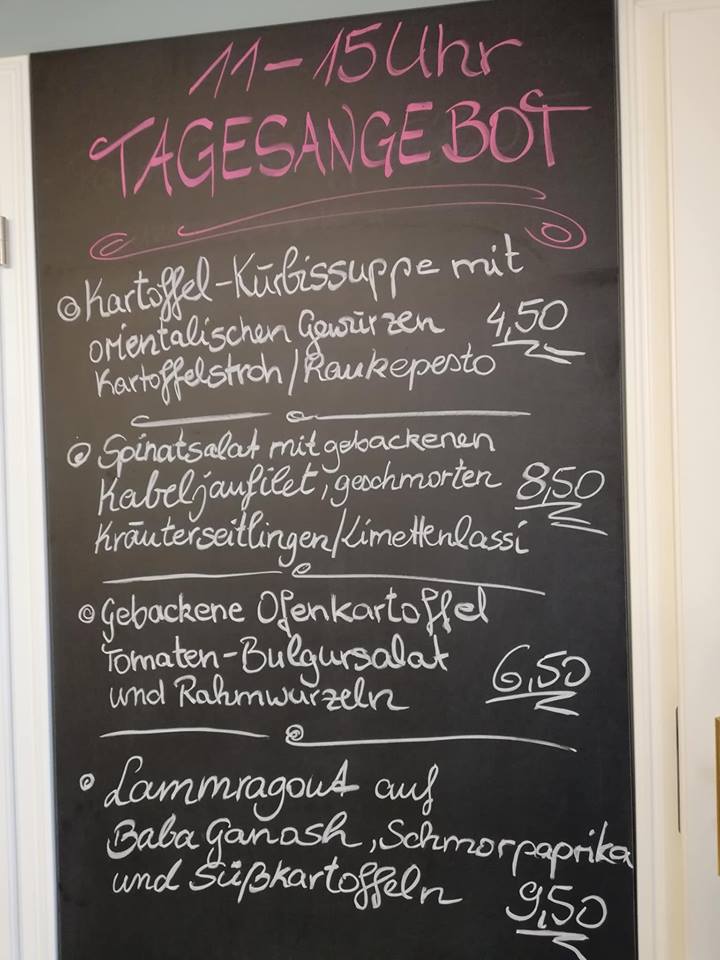 11-15 Uhr
TAGESANGEBOT
Kartoffel-Kürbissuppe mit
orientalischen Gewürzen 4,50
Kartoffelstroh/Raukepesto
Spinatsalat mit gebackenen
Kabeljaufilet, geschmorten 8,50
Kräuterseitlingen/Limettenlassi
Gebackene Ofenkartoffel
Tomaten-Bulgursalat
und Rahmwurzeln 6,50
Lammragout auf
Baba Ganash, Schmorpaprika
und Süßkartoffeln 9,50